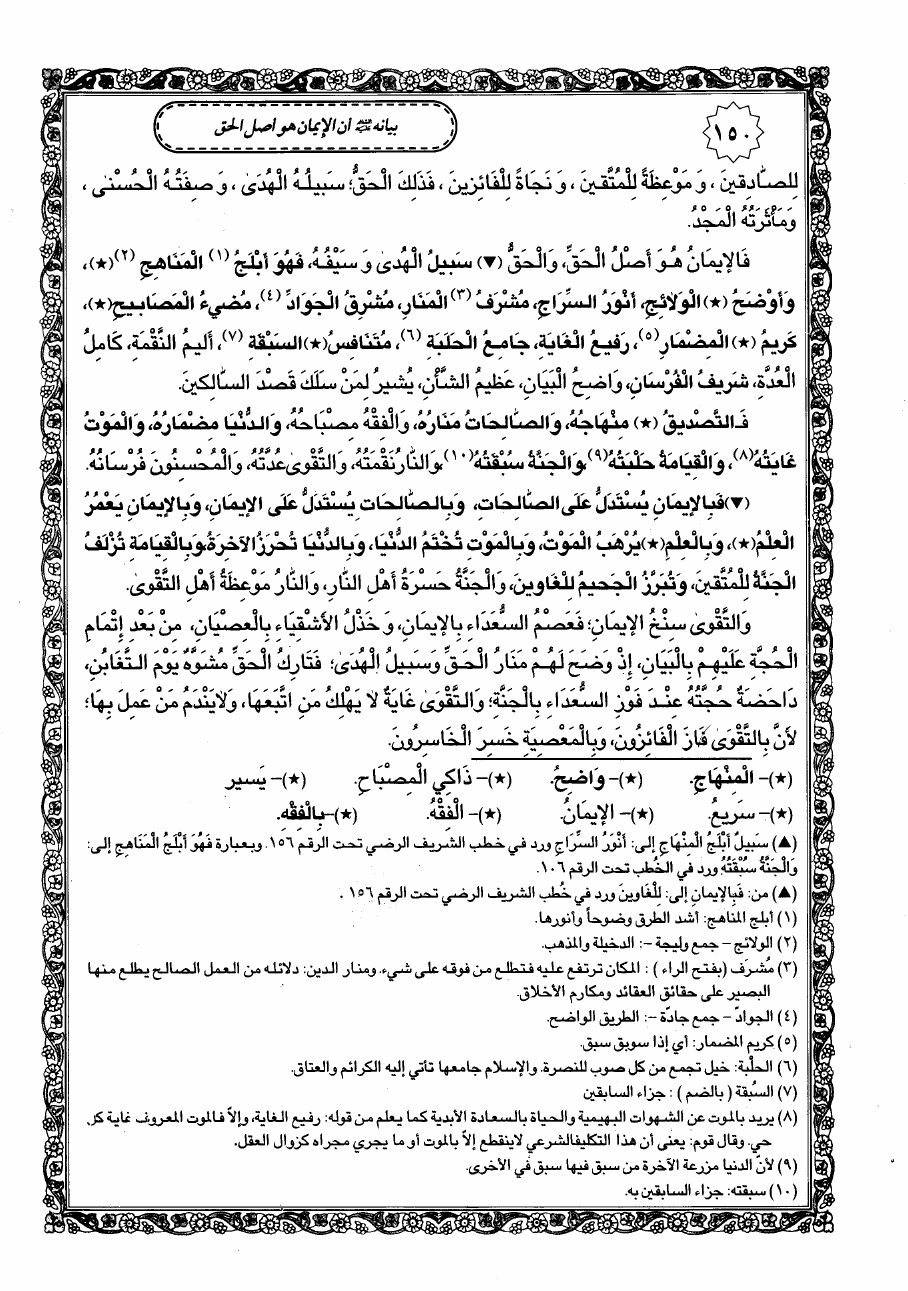 ١٥٠
بيانه ﷺ أن الإيمان هو أصل الحق
لِلصَّادِقِينَ، وَ مَوْعِظَةً لِلْمُتَّقِينَ، وَ نَجَاةً لِلْفَائِزِينَ، فَذَلِكَ الْحَقُّ؛ سَبِيلُهُ الْهُدَىٰ، وَ صِفَتُهُ الْحُسْنىٰ،
وَمَأْثَرَتُهُ الْمَجْدُ.
فَالإِيمَانُ هُوَ أَصْلُ الْحَقِّ، وَالْحَقُّ (▼) سَبِيلُ الْهُدىٰ وَ سَيْفُهُ، فَهُوَ أَبْلَجُ (١) الْمَنَاهِجِ (٢)(★)،
وَأَوْضَحُ (★) الْوَلَائِجِ، أَنْوَرُ السِّرَاجِ، مُشْرَفُ (٣) الْمَنَارِ، مُشْرِقُ الْجَوَادِّ (٤)، مُضِيءُ الْمَصَابِيحِ(★)،
كَرِيمُ (★) الْمِضْمَارِ(٥)، رَفِيعُ الْغَايَةِ، جَامِعُ الْحَلْبَةِ (٦)، مُتَنَافِسُ(★) السُّبْقَةِ (٧)، أَلِيمُ النَّقْمَةِ، كَامِلُ
الْعُدَّةِ، شَرِيفُ الْفُرْسَانِ، وَاضِحُ الْبَيَانِ، عَظِيمُ الشَّأْنِ، يُشِيرُ لِمَنْ سَلَكَ قَصْدَ السَّالِكِينَ.
فَالتَّصْدِيقُ (★) مِنْهَاجُهُ، وَالصَّالِحَاتُ مَنَارُهُ، وَالْفِقْهُ مِصْبَاحُهُ، وَالدُّنْيَا مِضْمَارُهُ، وَالْمَوْتُ
غَايَتُهُ(٨)، وَالْقِيَامَةُ حَلْبَتُهُ(٩)، وَالْجَنَّةُ سُبْقَتُهُ(١٠)، وَالنَّارُ نَقْمَتُهُ، وَالتَّقْوىٰ عُدَّتُهُ، وَالْمُحْسِنُونَ فُرْسَانُهُ.
(▼)فَبِالإِيمَانِ يُسْتَدَلُّ عَلَى الصَّالِحَاتِ، وَبِالصَّالِحَاتِ يُسْتَدَلُّ عَلَى الإِيمَانِ، وَبِالإِيمَانِ يَعْمُرُ
الْعِلْمُ(★)، وَبِالْعِلْمِ(★)يُرْهَبُ الْمَوْتُ، وَبِالْمَوْتِ تُخْتَمُ الدُّنْيَا، وَبِالدُّنْيَا تُحْرَزُ الآخِرَةُ، وَبِالْقِيَامَةِ تُزْلَفُ
الْجَنَّةُ لِلْمُتَّقِينَ، وَتُبَرَّزُ الْجَحِيمُ لِلْغَاوِينَ، وَالْجَنَّةُ حَسْرَةُ أَهْلِ النَّارِ، وَالنَّارُ مَوْعِظَةُ أَهْلِ التَّقْوىٰ.
وَالتَّقْوىٰ سِنْخُ الإِيمَانِ؛ فَعَصْمُ السُّعَدَاءِ بِالإِيمَانِ، وَ خَذْلُ الأَشْقِيَاءِ بِالْعِصْيَانِ، مِنْ بَعْدِ إِتْمَامِ
الْحُجَّةِ عَلَيْهِمْ بِالْبَيَانِ، إِذْ وَضَحَ لَهُمْ مَنَارُ الْحَقِّ وَسَبِيلُ الْهُدَىٰ؛ فَتَارِكُ الْحَقِّ مُشَوَّهٌ يَوْمَ التَّغَابُنِ،
دَاحِضَةٌ حُجَّتُهُ عِنْدَ فَوْزِ السُّعَدَاءِ بِالْجَنَّةِ؛ وَالتَّقْوىٰ غَايَةٌ لا يَهْلِكُ مَنِ اتَّبَعَهَا، وَلايَنْدَمُ مَنْ عَمِلَ بِهَا؛
لأَنَّ بِالتَّقْوىٰ فَازَ الْفَائِزُونَ، وَبِالْمَعْصِيَةِ خَسِرَ الْخَاسِرُونَ.
(★)- الْمِنْهَاجِ. (★)- وَاضِحُ. (★)- ذَاكِي الْمِصْبَاحِ. (★)- يَسير
(★)- سَرِيعُ. (★)- الإِيمَانُ. (★)- الْفِقْهُ. (★)-بِالْفِقْهِ.
(▲) سَبِيلٌ أَبْلَجُ الْمِنْهَاجِ إلى: أَنْوَرُ السِّرَاجِ ورد في خطب الشريف الرضي تحت الرقم ١٥٦. وبعبارة فَهُوَ أَبْلَجُ الْمَنَاهِجِ إلى:
وَالْجَنَّةُ سُبْقَتُهُ ورد في الخُطب تحت الرقم ١٠٦.
(▲) من: فَبِالإِيمَانِ إلى: لِلْغَاوِينَ ورد في خُطب الشريف الرضي تحت الرقم ١٥٦ .
(١) أبلج المناهج: أشد الطرق وضوحاً وأنورها.
(٢) الولائج - جمع وليجة -: الدخيلة والمذهب.
(٣) مُشرَف (بفتح الراء ) : المكان ترتفع عليه فتطلع من فوقه على شيء. ومنار الدين: دلائله من العمل الصالح يطلع منها
البصير على حقائق العقائد ومكارم الأخلاق.
(٤) الجوادّ - جمع جادّة -: الطريق الواضح.
(٥) كريم المضمار: أي إذا سوبق سبق.
(٦) الحلْبة: خيل تجمع من كل صوب للنصرة. والإسلام جامعها تأتي إليه الكرائم والعتاق.
(٧) السبُقة ( بالضم ) : جزاء السابقين
(٨) يريد بالموت عن الشهوات البهيمية والحياة بالسعادة الأبدية كما يعلم من قوله: رفيع الغاية، وإلاّ فالموت المعروف غاية كل
حي. وقال قوم: يعنى أن هذا التكليفالشرعي لاينقطع إلاّ بالموت أو ما يجري مجراه كزوال العقل.
(٩) لأنّ الدنيا مزرعة الآخرة من سبق فيها سبق في الأخرى.
(١٠) سبقته: جزاء السابقين به.